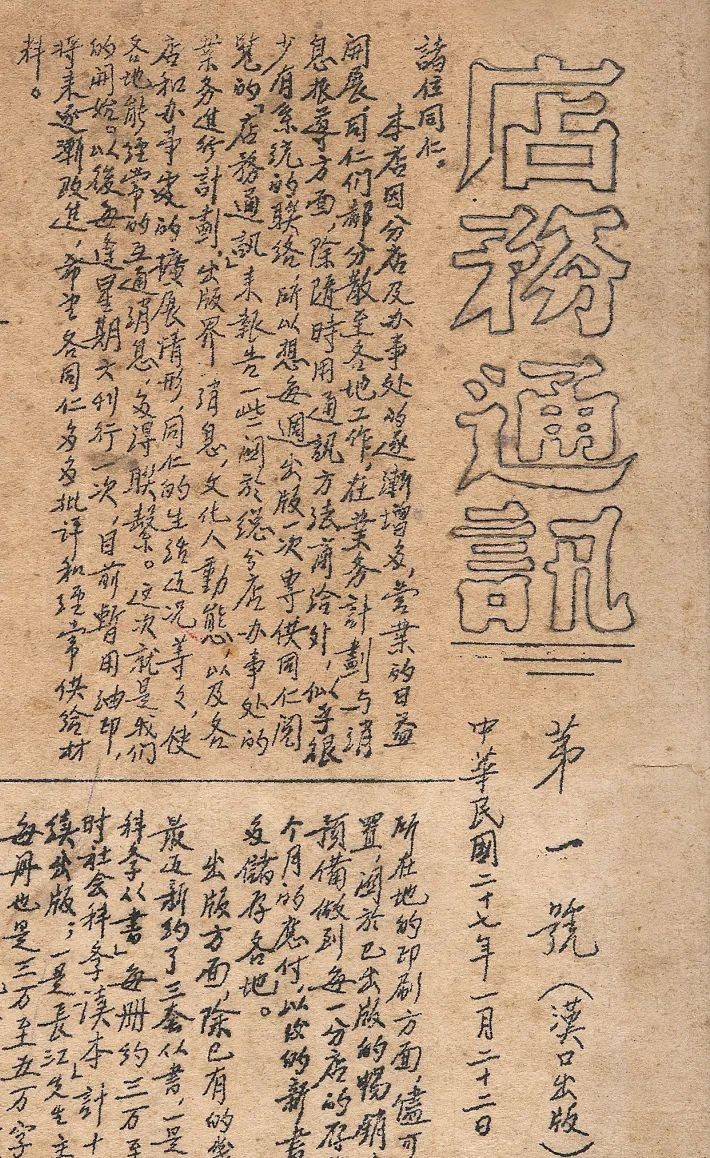 店務通訊
第一號（漢口出版）
中華民國二十七年一月二十二日
諸位同仁。
本店因分店及办事处的逐漸增多，营業的日益
開展同仁们都分散至各地工作，在業务計劃与消
息报导方面，除隨時用通訊方法商洽外，似乎很
少有系统的联络，所以想每週出版一次專供同仁閱
覽的「店務通訊」来報告一些関於總分店办事处的
業务進行計劃，出版界消息，文化人動態以及各
店和办事处的擴展情形，同仁的生活近况等々，使
各地能經常的互通消息，多得联繫。这次就是我们
的開始。以後每逢星期六刊行一次，目前暫用油印，
将来逐漸改進，希望各同仁多多批评和經常供给材
料。
所在地的印刷方面，儘可
置，関於已出版的暢銷
預備做到每一分店的存
个月的應付，以後的新書
多儲存各地。
出版方面，除已有的
最近新约了三套丛書，一是
科学丛書」每册约三万至
時社会科学讀本」計十
续出版；一是長江先生主
每册也是三万至五万字